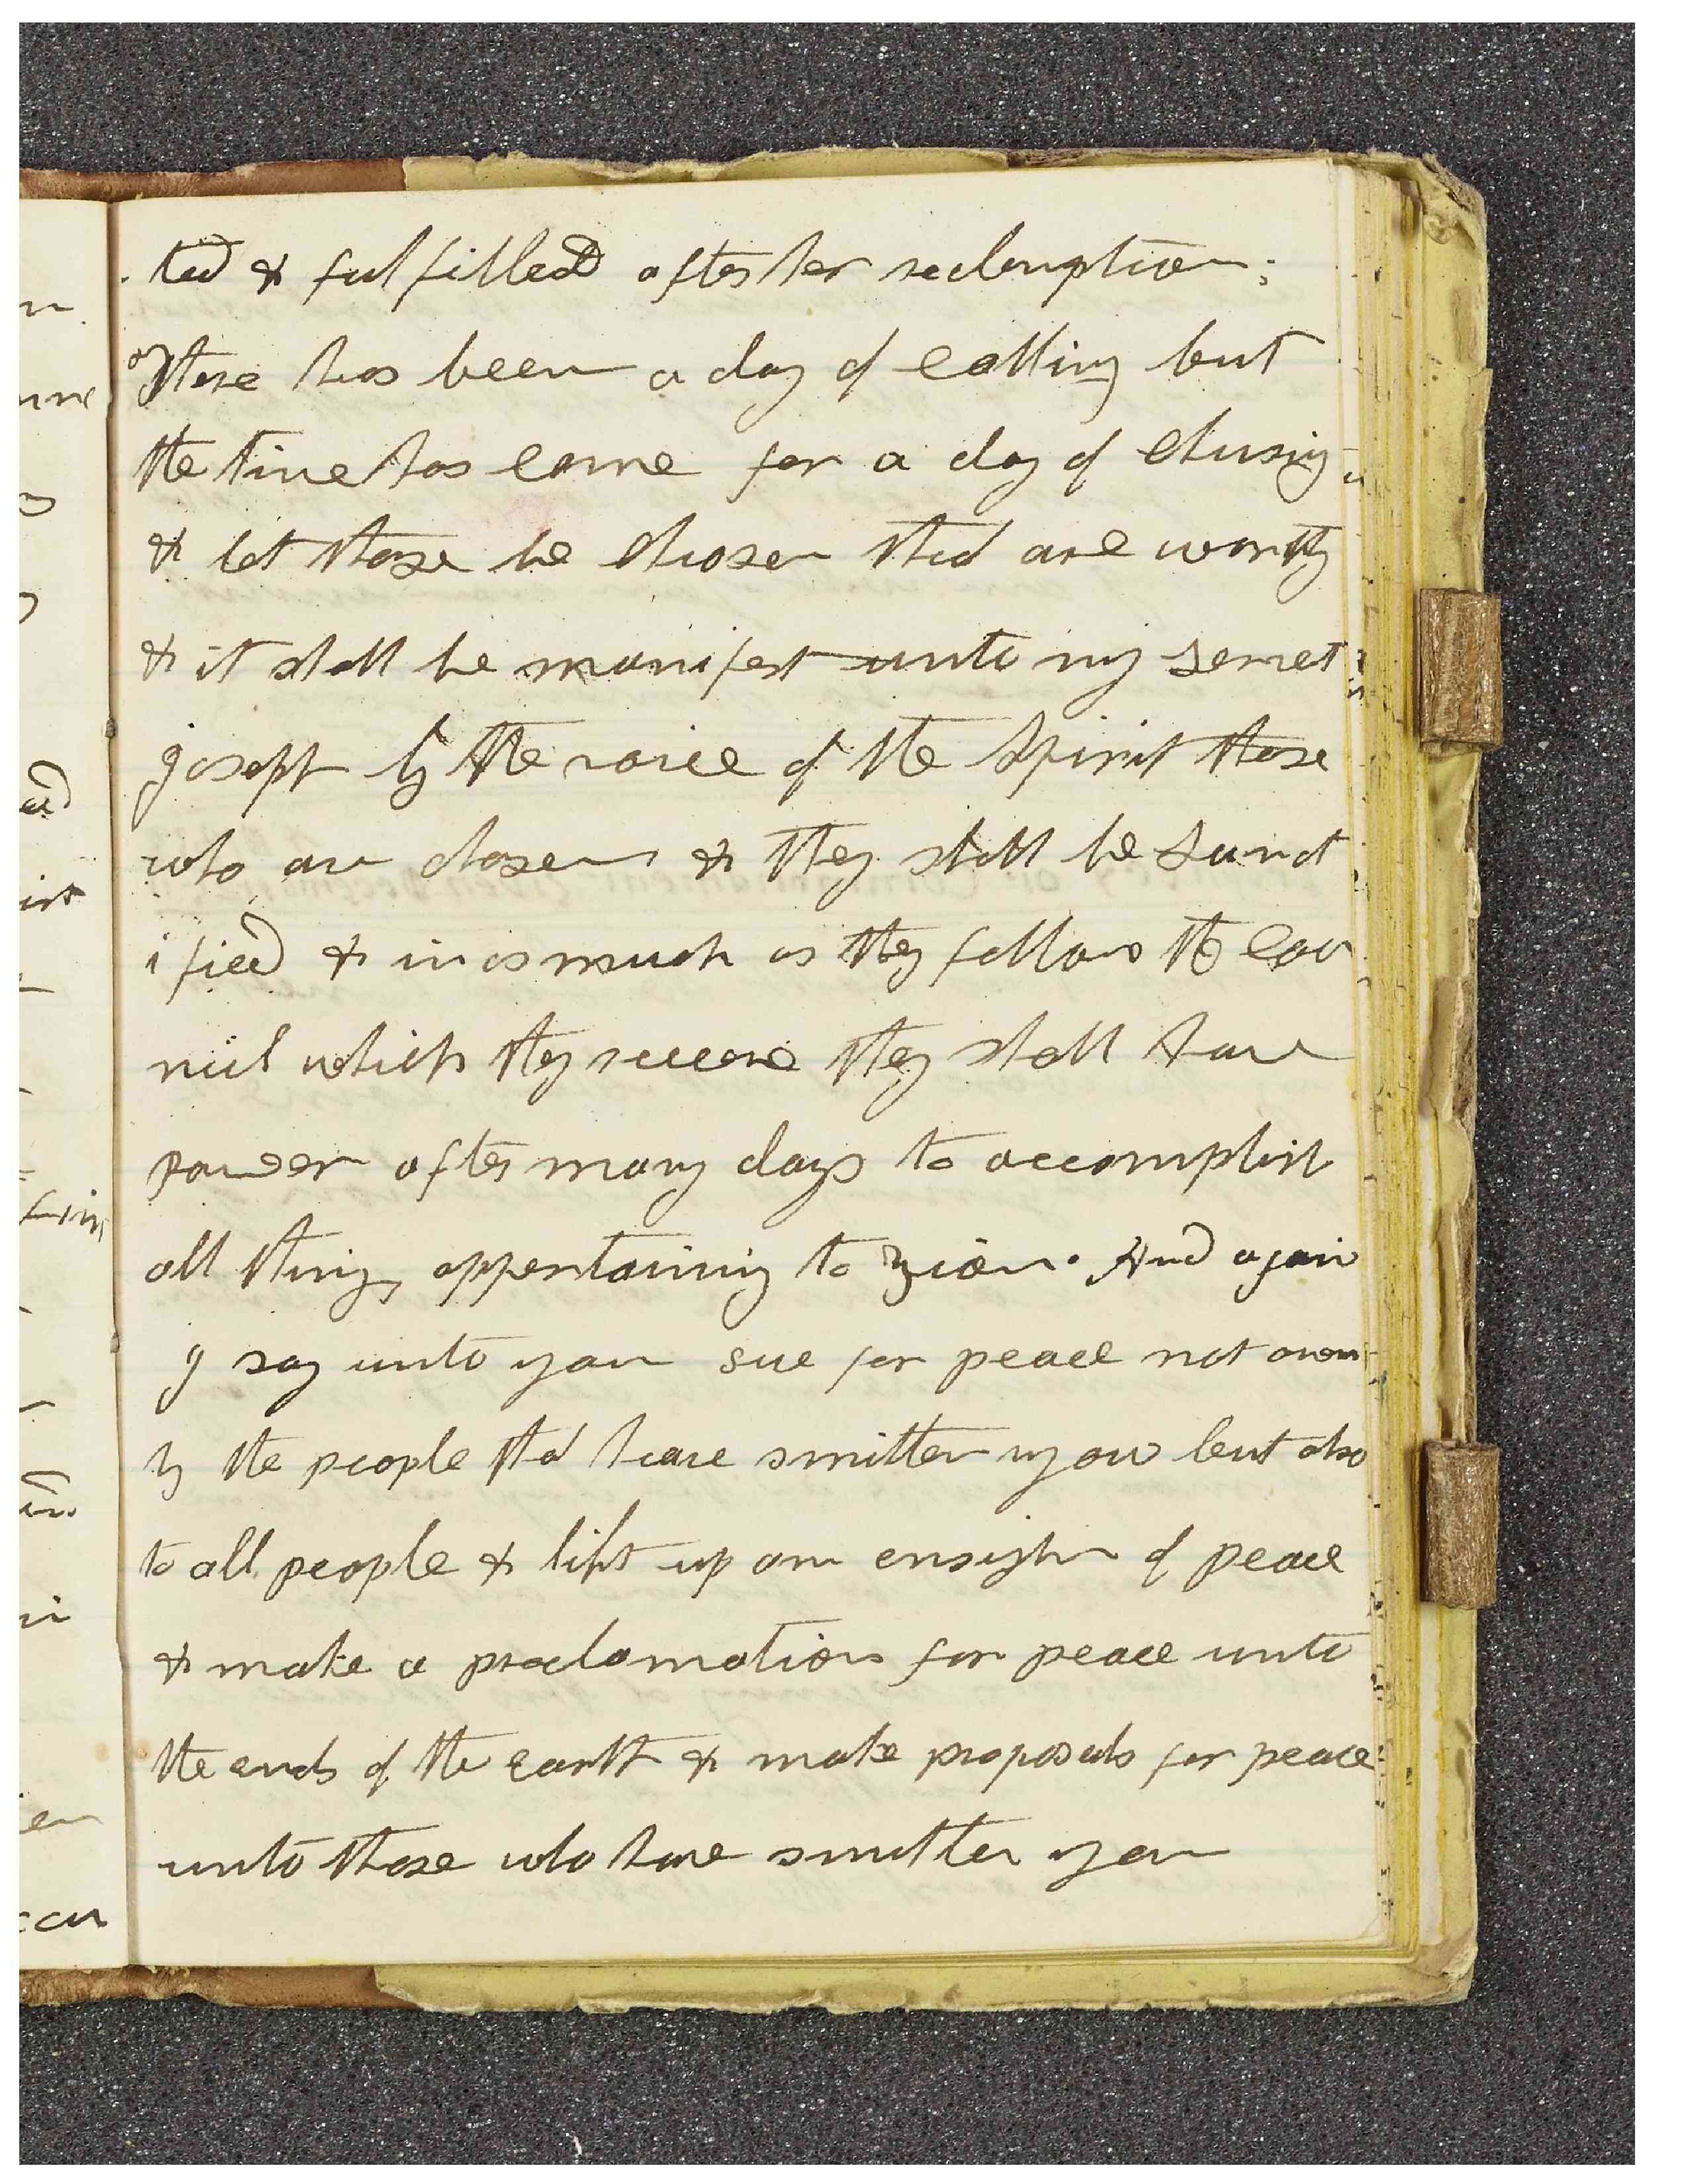 ted & fulfilled after her redemption;
There has been a day of calling but
the time has come for a day of chusing
& let those be chosen that are worthy
& it shall be manifest unto my servet
joseph by the voice of the Spirit those
who are chosen & they shall be sanct
ified & inasmuch as they follow the cou
ncil which they receive they shall have
power after many days to accomplish
all things appertaining to zion. And again
I say unto you sue for peace not only
by the people that have smitten you but also
to all people & lift up an ensighn of peace
& make a proclamation for peace unto
the ends of the earth & make proposals for peace
unto those who have smitten you